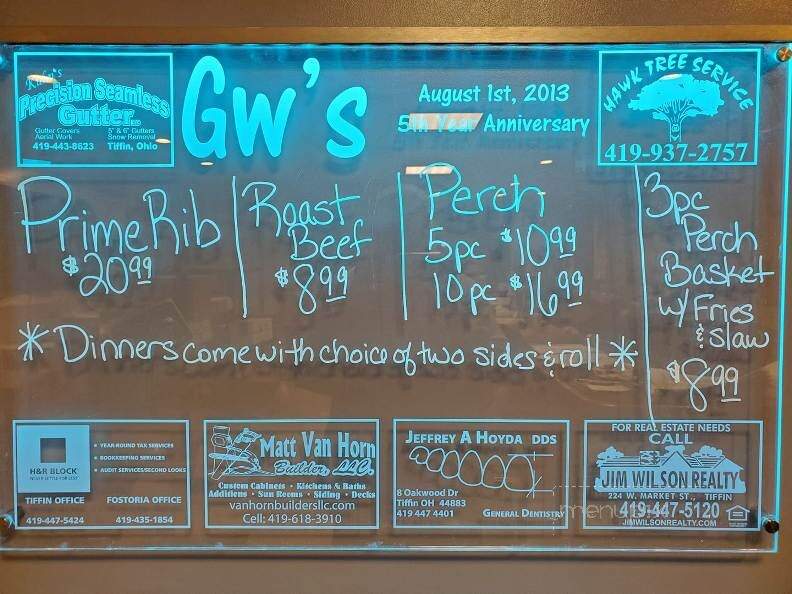 Kuhn's
Precision Seamless
Gutter LLC
Gutter Covers
Aerial Work
5" & 6" Gutters
Snow Removal
419-443-8623 Tiffin, Ohio
GW's
August 1st, 2013
5th Year Anniversary
HAWK TREE SERVICE
419-937-2757
Prime Rib
$20.99
Roast
Beef
$8.99
Perch
5pc $10.99
10pc $16.99
3pc
Perch
Basket
w/ Fries
& slaw
$8.99
* Dinners come with choice of two sides & roll *
H&R BLOCK
• YEAR-ROUND TAX SERVICES
• BOOKKEEPING SERVICES
• AUDIT SERVICES/SECOND LOOKS
TIFFIN OFFICE
419-447-5424
FOSTORIA OFFICE
419-435-1854
Matt Van Horn
Builders, LLC.
Custom Cabinets • Kitchens & Baths
Additions • Sun Rooms • Siding • Decks
vanhornbuildersllc.com
Cell: 419-618-3910
JEFFREY A HOYDA DDS
8 Oakwood Dr
Tiffin OH 44883
419 447 4401
GENERAL DENTISTRY
FOR REAL ESTATE NEEDS
CALL
JIM WILSON REALTY
224 W. MARKET ST., TIFFIN
419-447-5120
JIMWILSONREALTY.COM